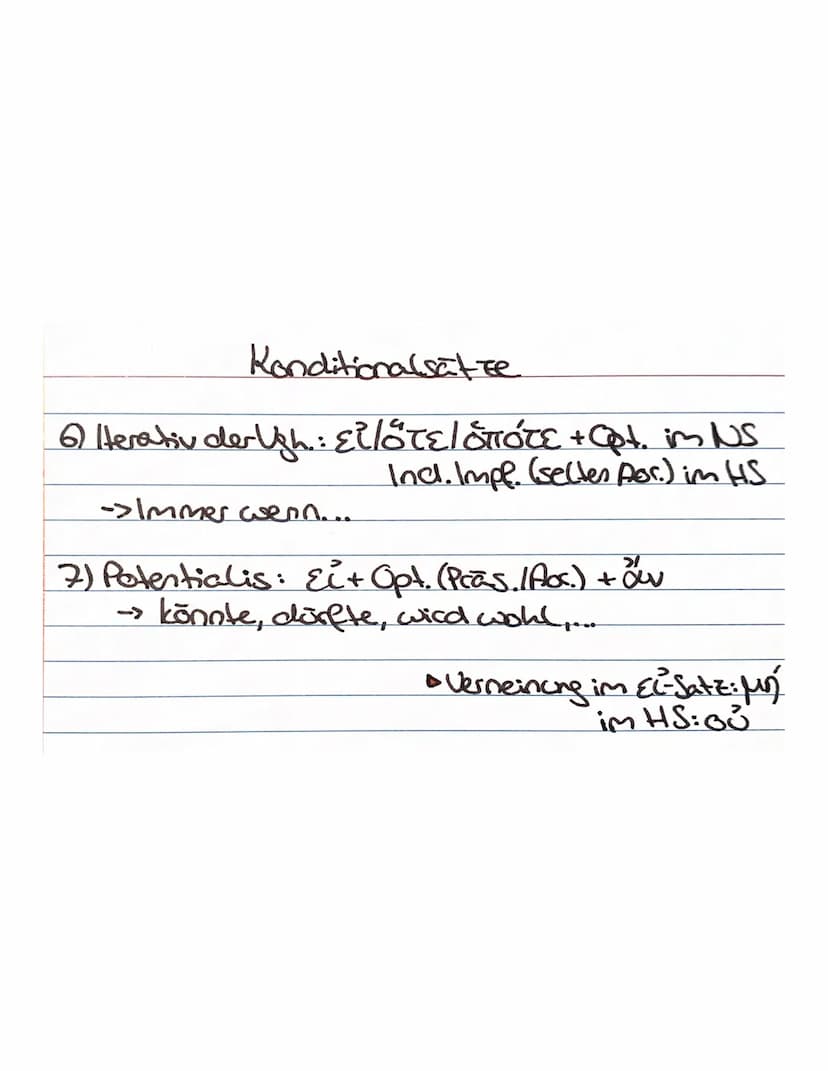 Konditionalsätze
6) Iterativ der Vgh.: εἰ/ὅτε/ὁπότε + Opt. im NS
Ind. Impf. (selten Aor.) im HS
-> Immer wenn...
7) Potentialis: εἰ + Opt. (Präs./Aor.) + ἄν
-> könnte, dürfte, wird wohl,...
▸ Verneinung im εἰ-Satz: μή
im HS: οὐ